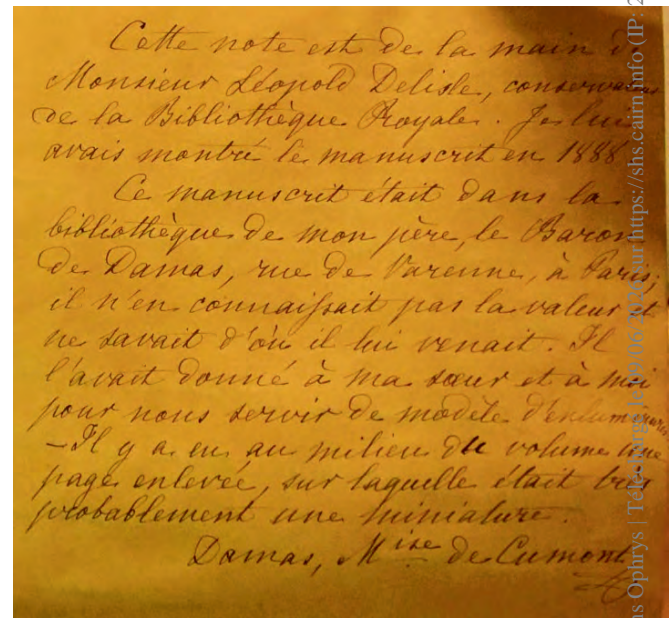 Cette note est de la main de
Monsieur Léopold Delisle, conservateur
de la Bibliothèque Royale. Je lui
avais montré le manuscrit en 1888
Ce manuscrit était dans la
bibliothèque de mon père, le Baron
de Damas, rue de Varenne, à Paris;
il n'en connaissait pas la valeur et
ne savait d'où il lui venait. Il
l'avait donné à ma sœur et à moi
pour nous servir de modèle d'enluminures
– Il y a eu au milieu du volume une
page enlevée, sur laquelle était très
probablement une miniature.
Damas, Mise de Cumont
ns Ophrys | Téléchargé le 09/06/2026 sur https://shs.cairn.info (IP: 2